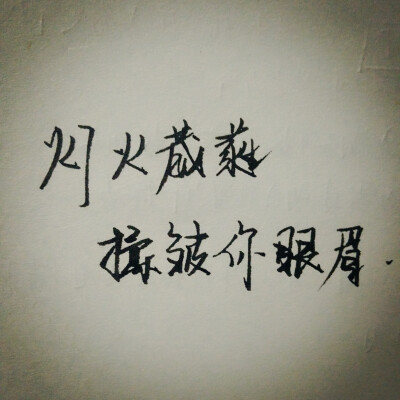 灯火葳蕤
揉皱你眼眉.